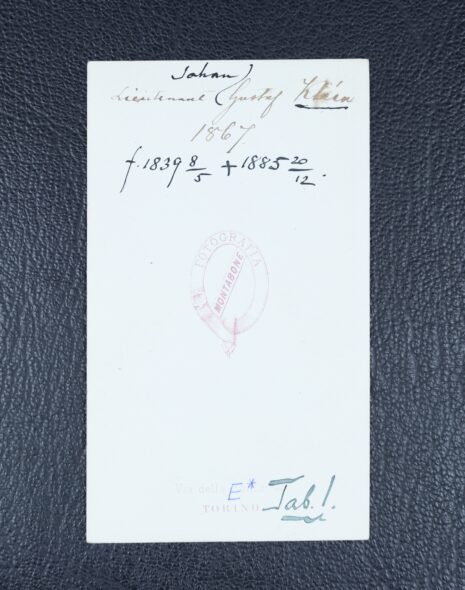 Johan)
Lieutenant (Gustaf Kléen
1867.
f. 1839 8/5 + 1885 20/12.
FOTOGRAFIA
MONTABONE
Via della
E*
TORINO
Tab. 1.